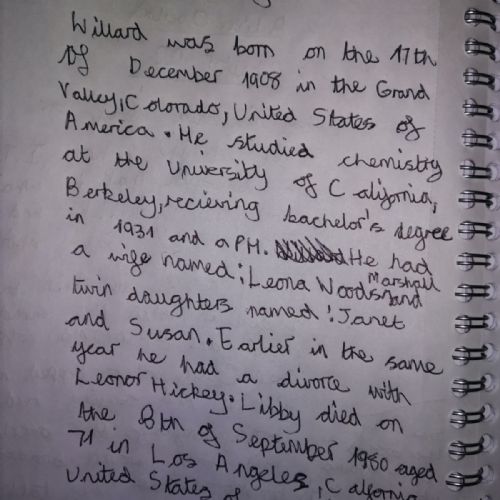 Willard was born on the 17th
Of December 1908 in the Grand
Valley, Colorado, United States of
America. He studied chemistry
at the University of California,
Berkeley, recieving bachelor's degree
in 1931 and a PH. He had
a wife named: Leona Woods Marshall and
twin daughters named: Janet
and Susan. Earlier in the same
year he had a divorce with
Leonor Hickey. Libby died on
the 8th of September 1980 aged
71 in Los Angeles, California
United States of